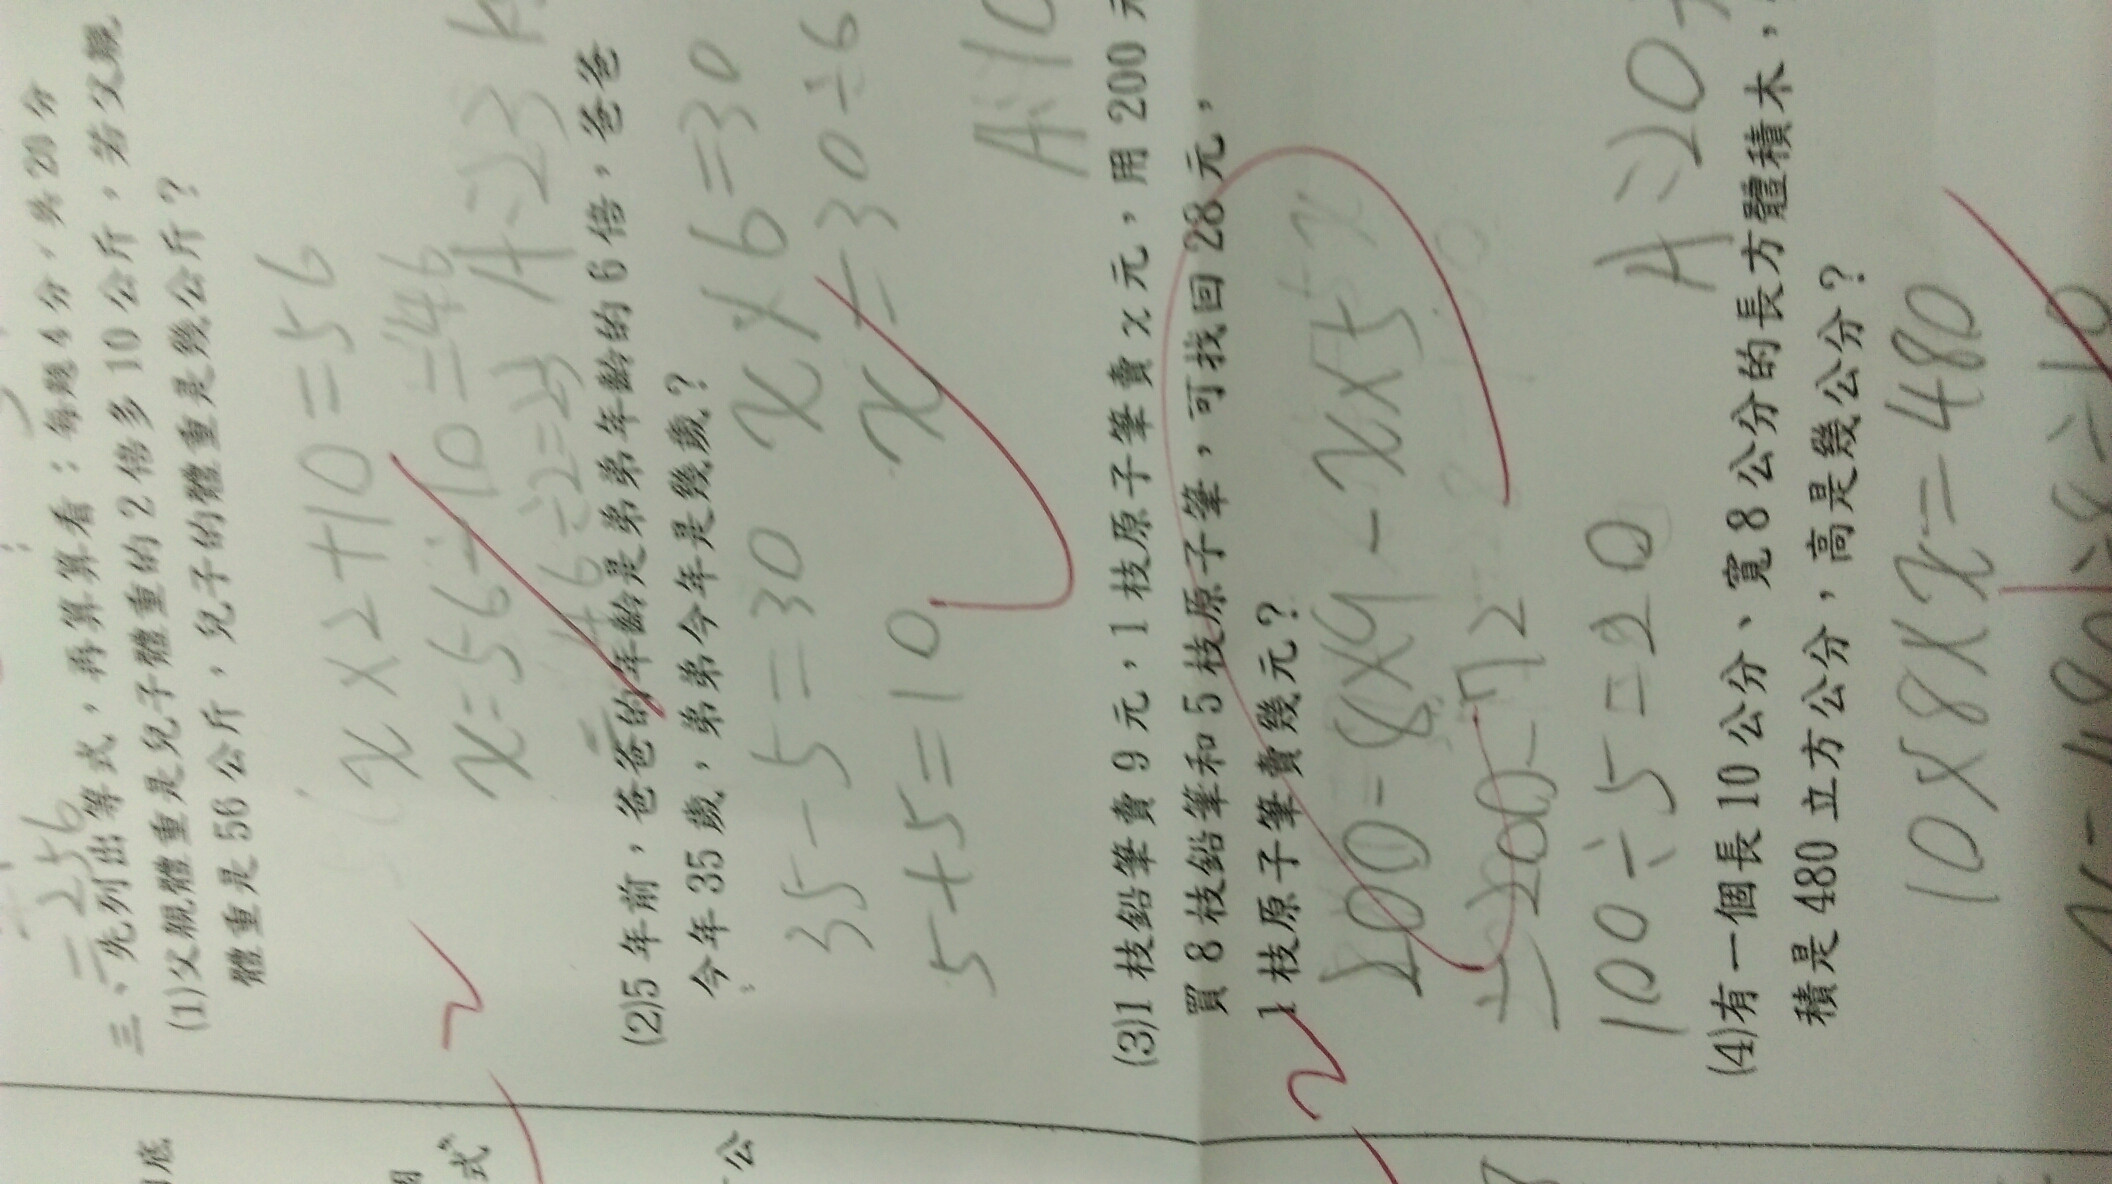 =256
三、先列出等式，再算算看：每題4分，共20分
(1)父親體重是兒子體重的2倍多10公斤，若父親
體重是56公斤，兒子的體重是幾公斤？
x×2+10=56
x=56-10=46
46÷2=23
A:23
(2)5年前，爸爸的年齡是弟弟年齡的6倍，爸爸
今年35歲，弟弟今年是幾歲？
35-5=30 x×6=30
x=30÷6
5+5=10
A:10
(3)1枝鉛筆賣9元，1枝原子筆賣x元，用200元
買8枝鉛筆和5枝原子筆，可找回28元，
1枝原子筆賣幾元？
200=8×9-x×5
=200-72
100÷5=20
A:20
(4)有一個長10公分、寬8公分的長方體積木，
積是480立方公分，高是幾公分？
10×8×x=480
÷8÷10
底
式
公